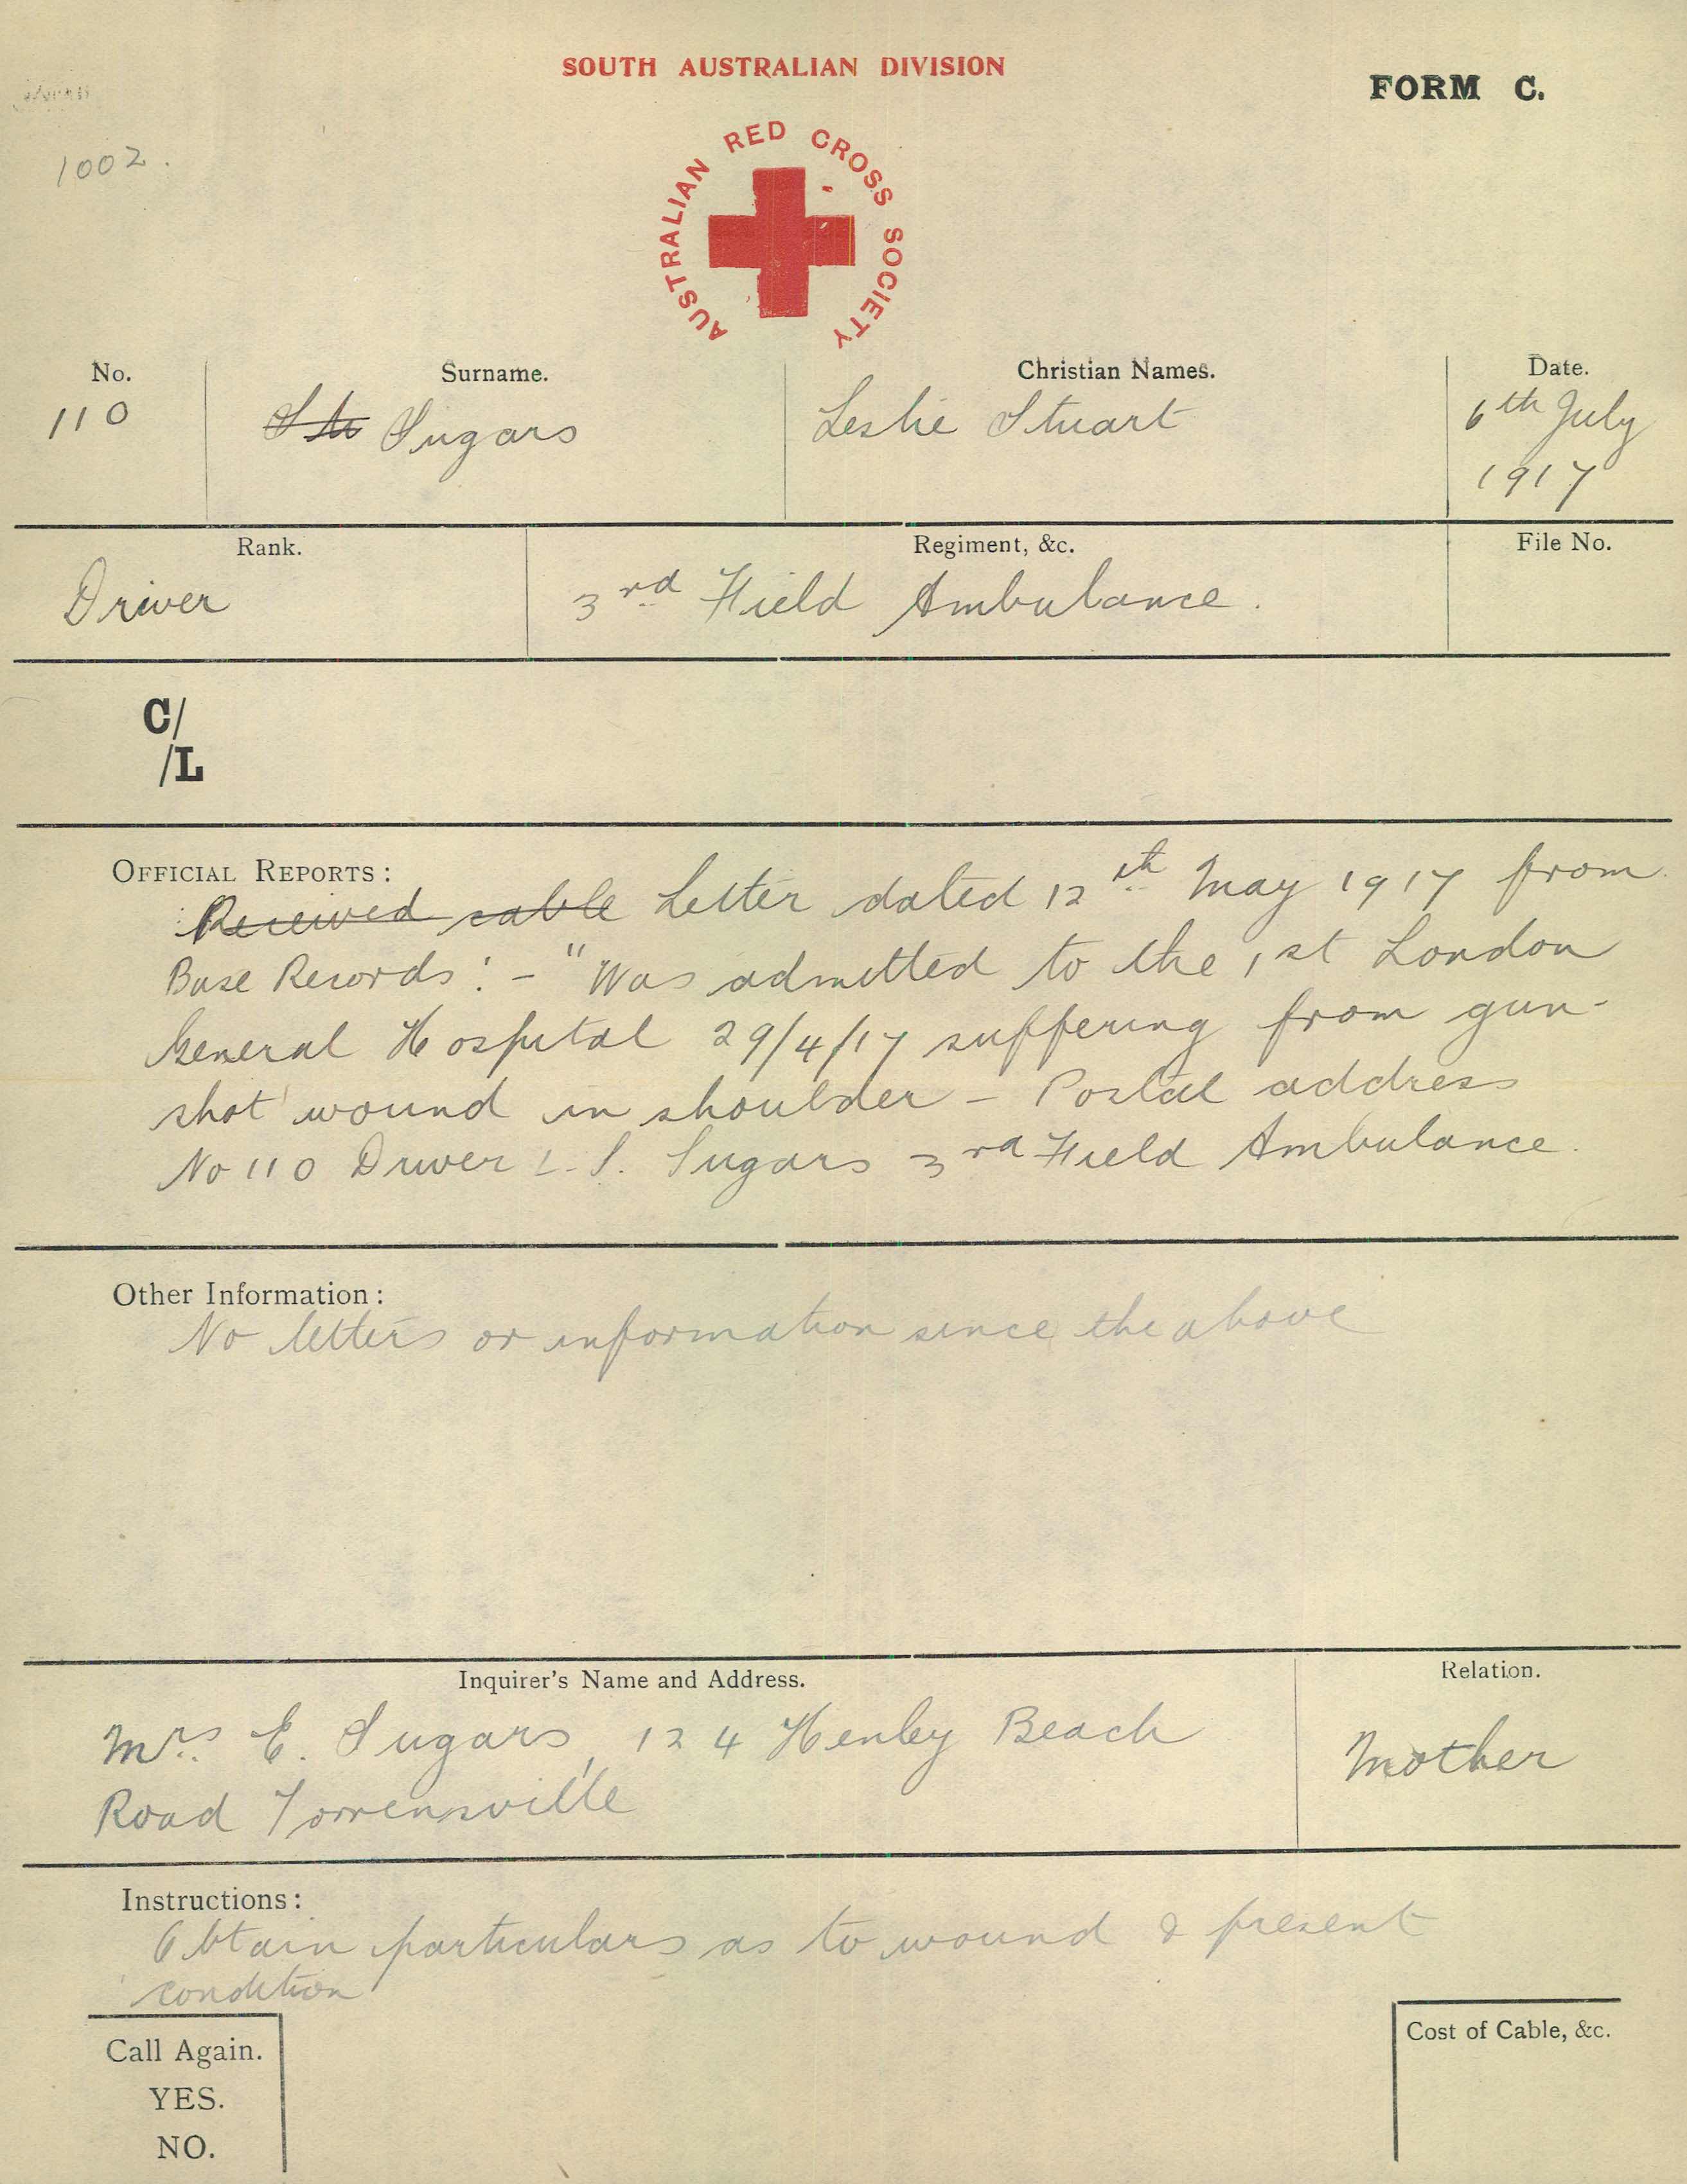 SOUTH AUSTRALIAN DIVISION
FORM C.
1002.
AUSTRALIAN RED CROSS SOCIETY
No. Surname. Christian Names. Date.
110 Sugars Leslie Stuart 6th July
1917
Rank. Regiment, &c. File No.
Driver 3rd Field Ambulance.
C/
/L
OFFICIAL REPORTS:
Received cable Letter dated 12th May 1917 from
Base Records: - "Was admitted to the 1st London
General Hospital 29/4/17 suffering from gun-
shot wound in shoulder - Postal address
No 110 Driver L. S. Sugars 3rd Field Ambulance.
Other Information:
No letters or information since the above
Inquirer's Name and Address. Relation.
Mrs. E. Sugars, 124 Henley Beach Mother
Road Torrensville
Instructions:
Obtain particulars as to wound & present
condition
Call Again. Cost of Cable, &c.
YES.
NO.